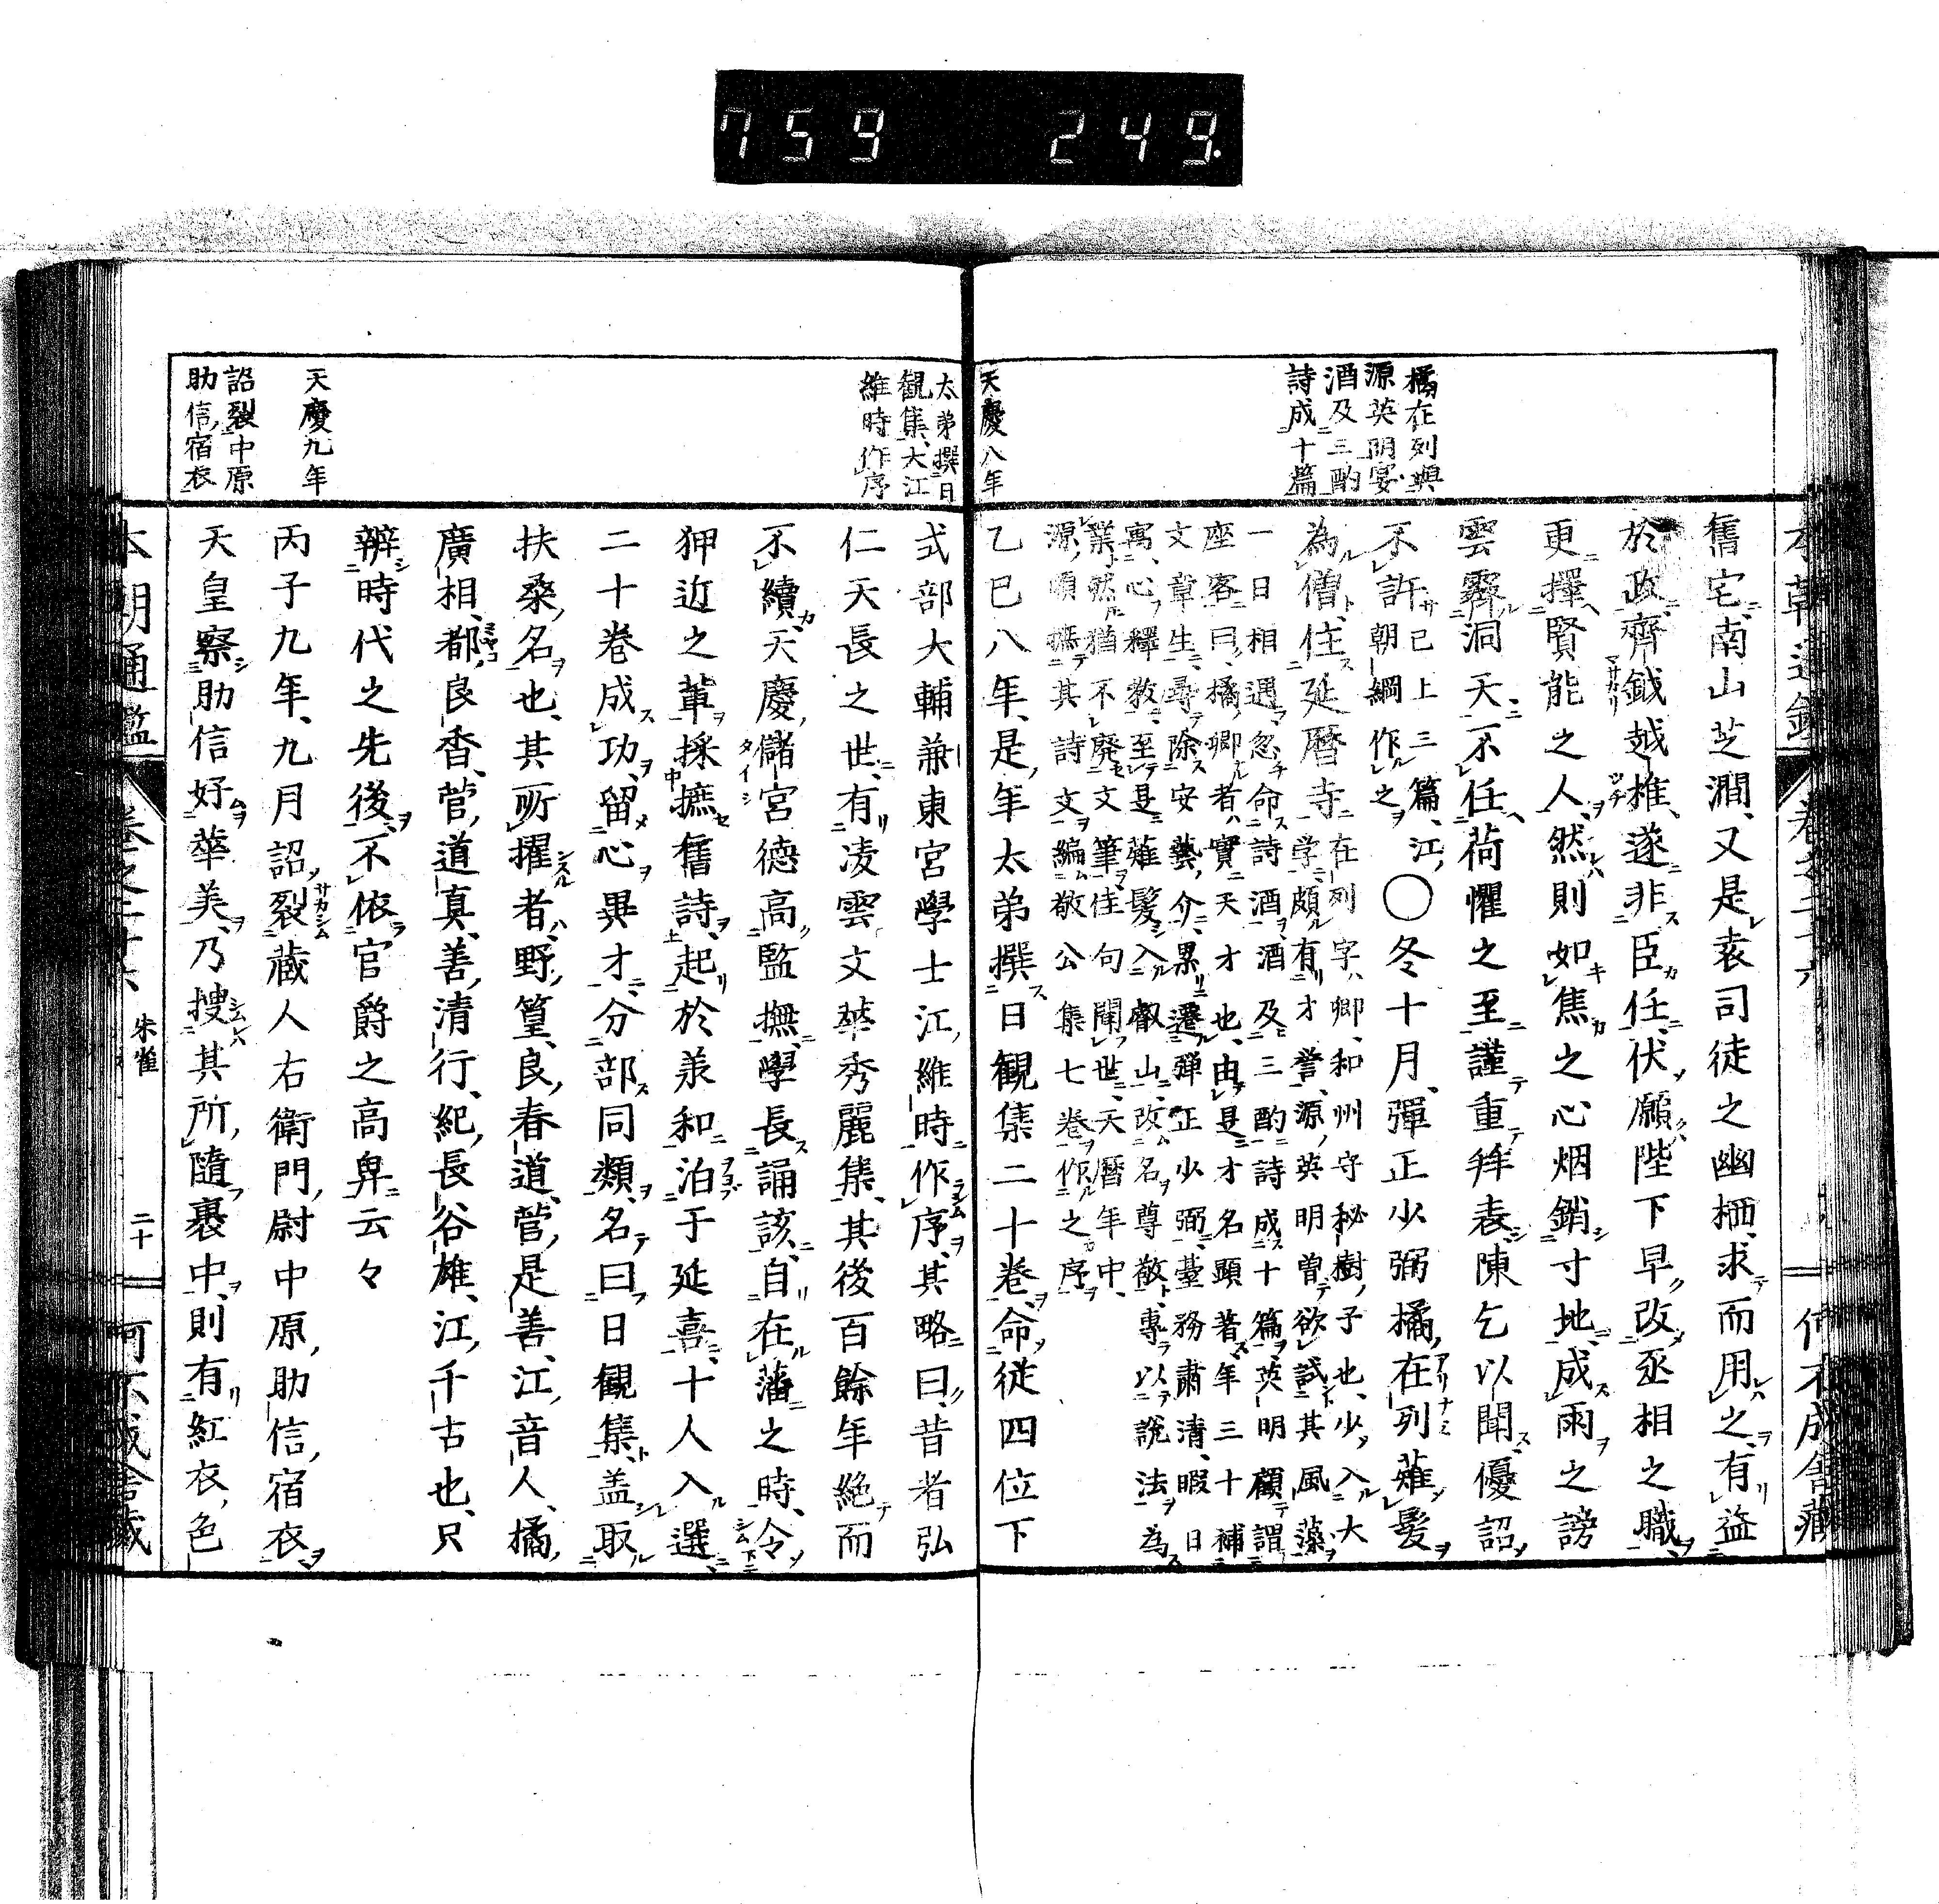 759 249.
橘在列與
源英明宴
酒及三酌
詩成十篇
天慶八年
舊宅南山芝澗又是袁司徒之幽栖求而用之有益
於政齊鉞越椎遂非臣任伏願陛下早改丞相之職
更擇賢能之人然則如焦之心烟銷寸地成雨之謗
雲霽洞天不任荷懼之至謹重拜表陳乞以聞優詔
不許已上三篇江朝綱作之〇冬十月彈正少弼橘在列薙髮
為僧住延曆寺在列字卿和州守秘樹子也少入大
学頗有才誉源英明曽欲試其風藻
一日相遇忽命詩酒酒及三酌詩成十篇英明顧謂
座客曰橘卿者實天才也由是才名顯著年三十補
文章生尋除安藝介累遷彈正少弼臺務肅清暇日
寓心釋教至是薙髮入叡山改名尊敬專以說法為
業然猶不廢文筆佳句聞世天曆年中
源順攜其詩文編敬公集七卷作之序
乙巳八年是年太弟撰日観集二十卷命從四位下
太弟撰日
観集大江
維時作序
天慶九年
詔裂中原
助信宿衣
式部大輔兼東宮學士江維時作序其略曰昔者弘
仁天長之世有凌雲文華秀麗集其後百餘年絶而
不續天慶儲宮德高監撫學長誦該自在藩之時令
狎近之輩採摭舊詩起於承和泊于延喜十人入選
二十卷成功留心畢才分部同類名曰日観集盖取
扶桑名也其所擢者野篁良春道菅是善江音人橘
廣相都良香菅道真善清行紀長谷雄江千古也只
辨時代之先後不依官爵之高卑云々
丙子九年九月詔裂藏人右衛門尉中原助信宿衣
天皇察助信好華美乃搜其所隨裹中則有紅衣色
本朝通鑑
朱雀
二十